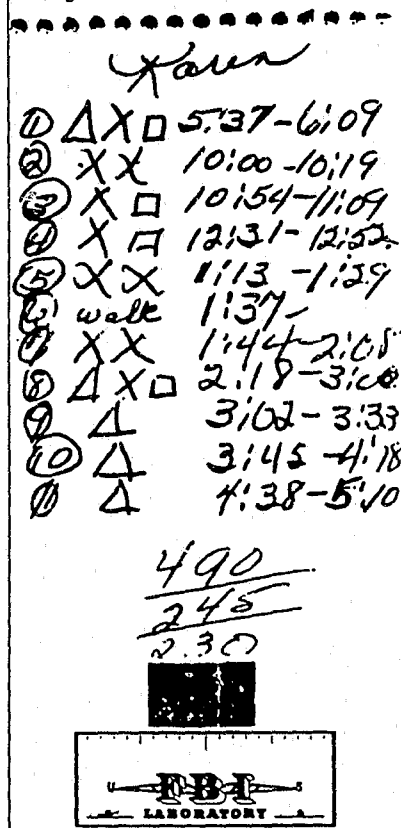 Karen
① △ X □ 5:37-6:09
② X X 10:00-10:19
③ X □ 10:54-11:09
④ X □ 12:31-12:52
⑤ X X 1:13-1:29
⑥ walk 1:37-
⑦ X X 1:44-2:08
⑧ △ X □ 2:18-3:00
⑨ △ 3:02-3:33
⑩ △ 3:45-4:18
⑪ △ 4:38-5:10
490
245
2.30
FBI
LABORATORY